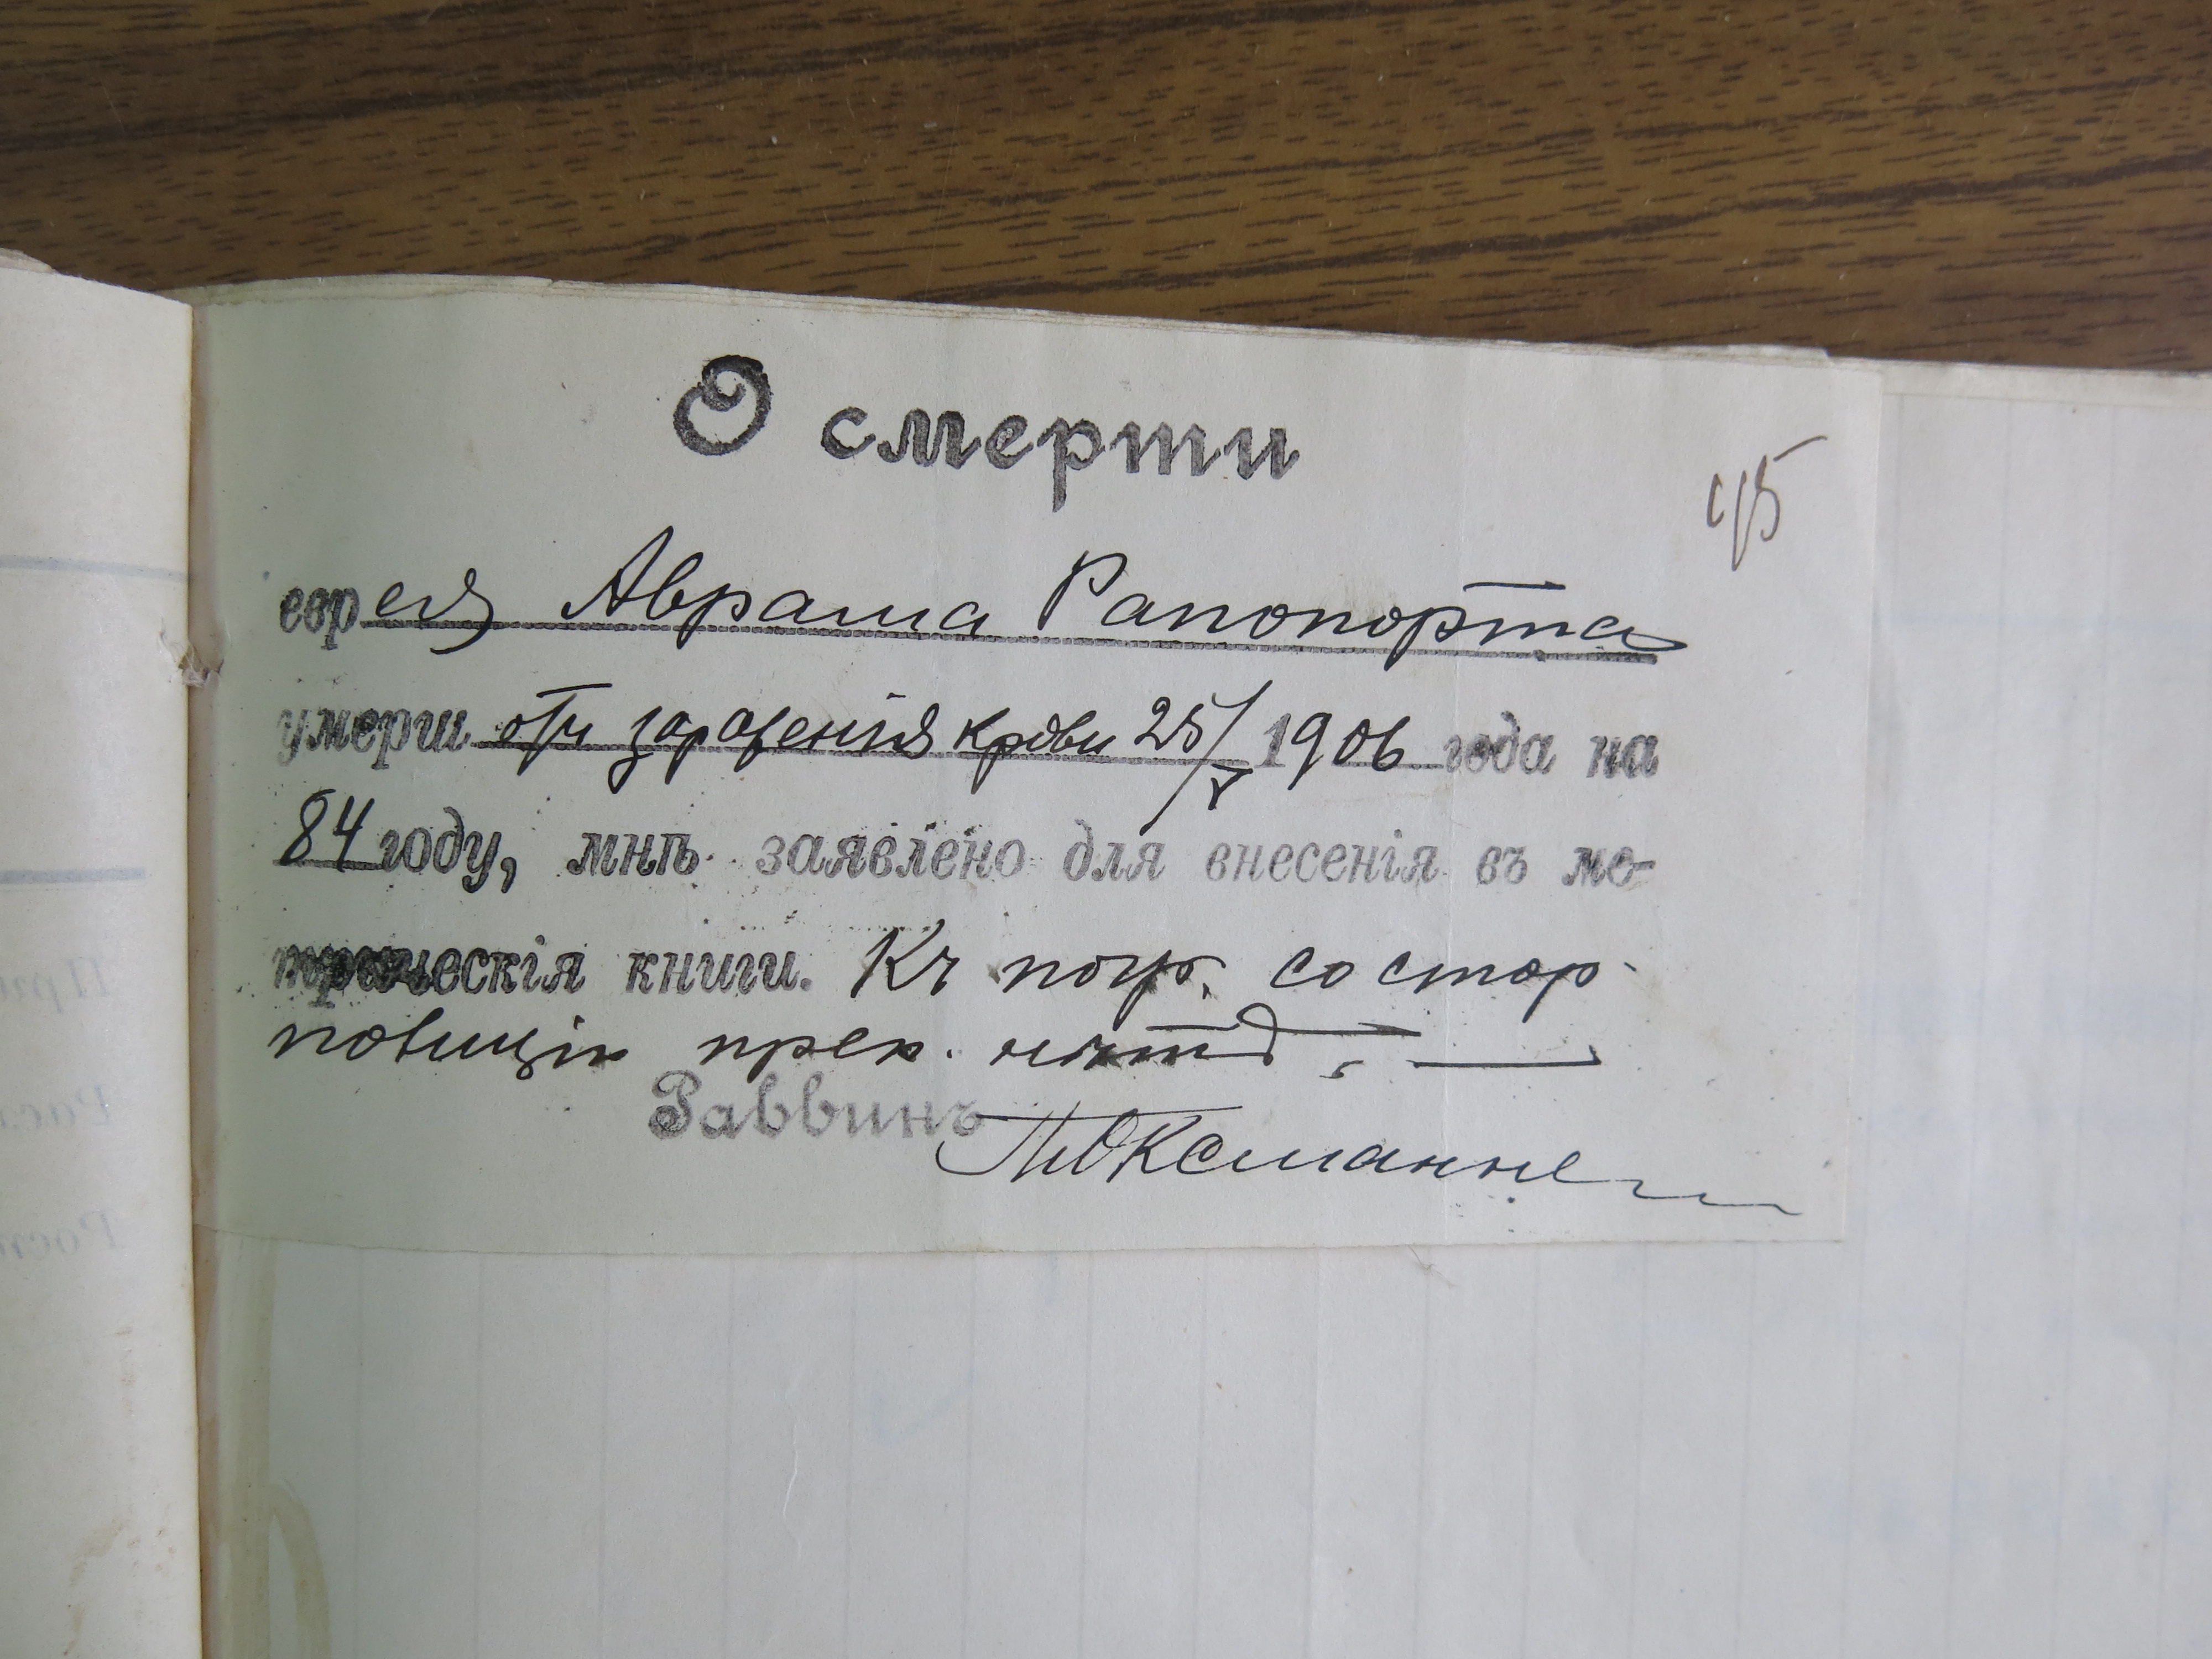 О смерти
45
еврея Авраама Рапопорта
умерш отъ зараженія крови 25/V 1906 года на
84 году, мнѣ заявлено для внесенія въ ме-
трическія книги. Къ погр. со стор.
полиціи преп. нѣтъ,
Раввинъ